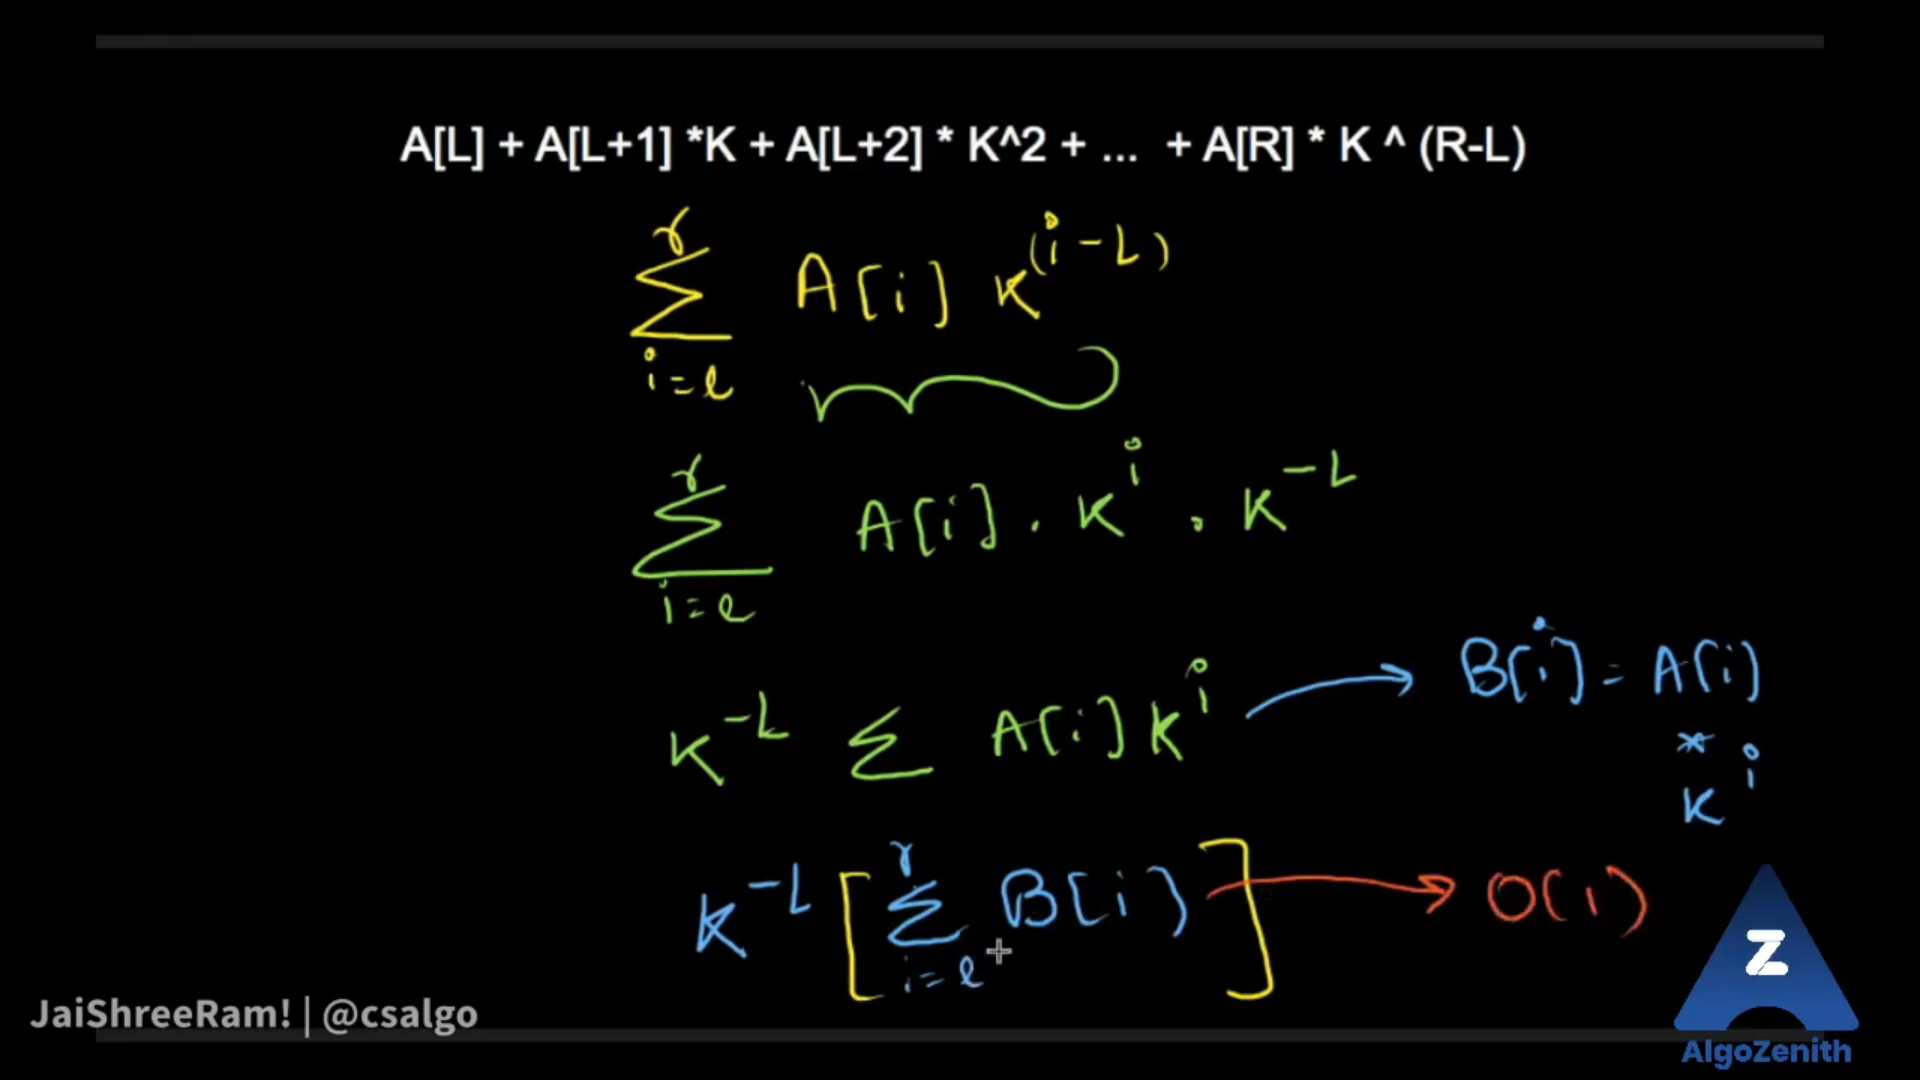 A[L] + A[L+1] *K + A[L+2] * K^2 + ... + A[R] * K ^ (R-L)
r
Σ A[i] K^(i-L)
i=l
r
Σ A[i] . K^i . K^-L
i=l
K^-L Σ A[i] K^i → B[i] = A[i]
* K^i
r
K^-L [ Σ B[i] ] → O(1)
i=l
JaiShreeRam! | @csalgo
Z
AlgoZenith